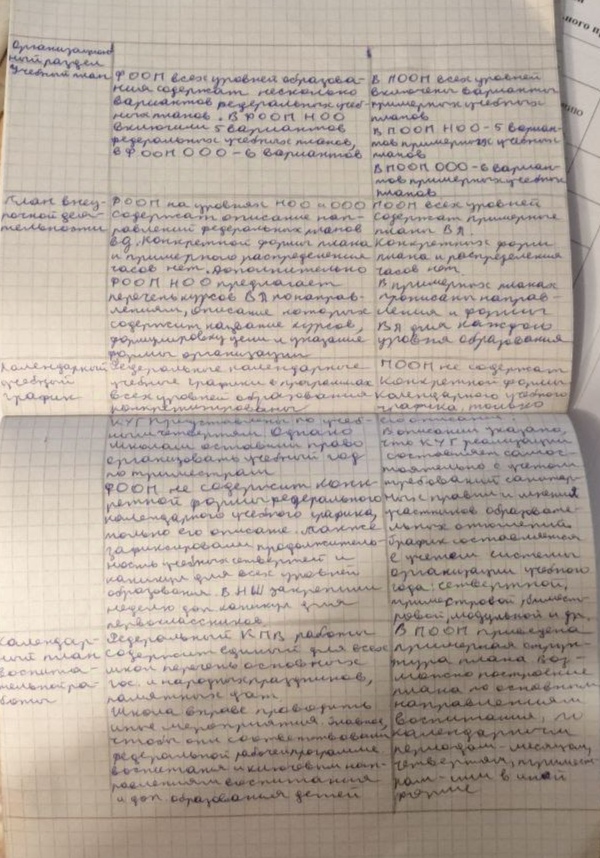 Организацион
ный раздел
Учебный план
ФООП всех уровней образова-
ния содержат несколько
вариантов федеральных учеб-
ных планов. В ФООП НОО
включили 5 вариантов
федеральных учебных планов,
в ФООП ООО - 6 вариантов
В ПООП всех уровней
включены варианты
примерных учебных
планов
В ПООП НОО - 5 вариан-
тов примерных учебных
планов
В ПООП ООО - 6 вариан-
тов примерных учебных
планов
План внеу-
рочной дея-
тельности
ФООП на уровнях НОО и ООО
содержат описание нап-
равлений федеральных планов
ВД. Конкретной формы плана
и примерного распределения
часов нет. Дополнительно
ФООП НОО предлагает
перечень курсов ВД по направ-
лениям, описание которых
содержит название курсов,
формулировку цели и указание
формы организации
ПООП всех уровней
содержат примерные
планы ВД.
Конкретных форм
плана и распределения
часов нет.
В примерных планах
прописаны направ-
ления и формы
ВД для каждого
уровня образования
Календарный
учебный
график
Федеральные календарные
учебные графики в программах
всех уровней образования
конкретизированы
КУГ представлены по учеб-
ным четвертям. Однако
школам оставили право
организовать учебный год
по триместрам
ФООП не содержит конк-
ретной формы федерального
календарного учебного графика,
только его описание. Также
зафиксировали продолжитель-
ность учебных четвертей и
каникул для всех уровней
образования. В НШ закрепили
неделю доп каникул для
первоклассников.
ПООП не содержат
конкретной формы
календарного учебного
графика, только
его описание.
В описании указано,
что КУГ реализации
составляем самос-
тоятельно с учетом
требований санитар-
ных правил и мнения
участников образовате-
льных отношений
График составляется
с учетом системы
организации учебного
года: четвертной,
триместровой, бимест-
ровой, модульной и др.
Календар-
ный план
воспита-
тельной ра-
боты
Федеральный КПВ работы
содержит единый для всех
школ перечень основных
гос. и народных праздников,
памятных дат.
Школа вправе проводить
иные мероприятия. Главное,
чтобы они соответствовали
федеральной рабочей программе
воспитания и ключевым нап-
равлениям воспитания
и доп. образования детей
В ПООП приведена
примерная струк-
тура плана. Воз-
можно построение
плана по основным
направлениям
воспитания, по
календарным
периодам - месяцам,
четвертям, тримест-
рам - или в иной
форме